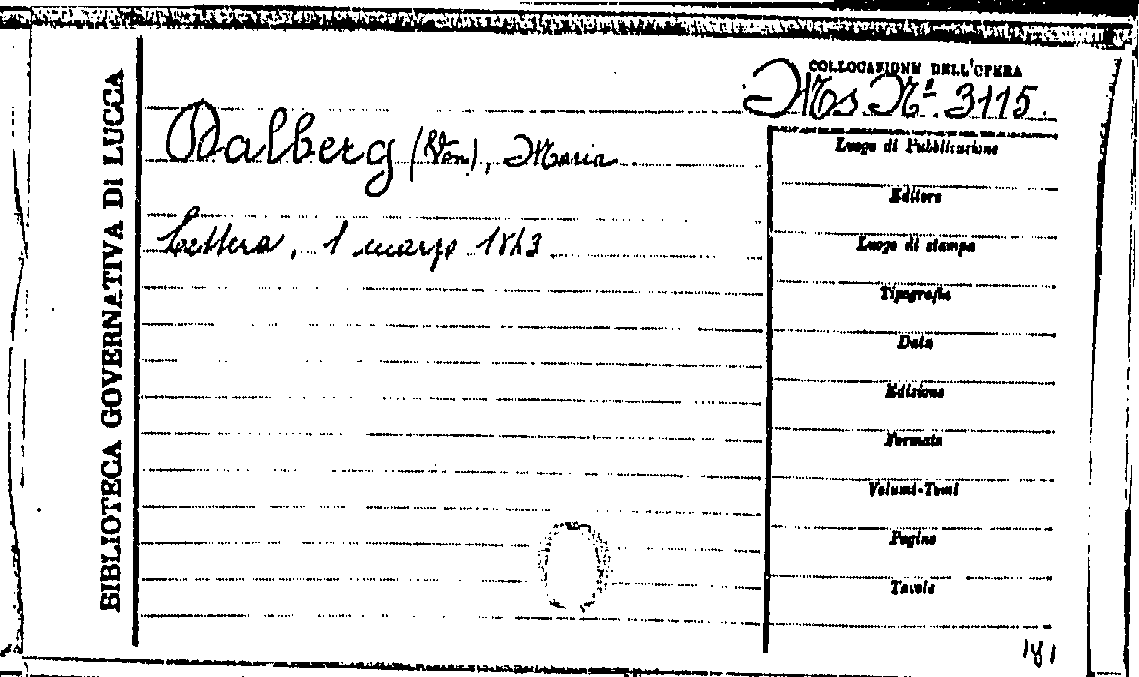 BIBLIOTECA GOVERNATIVA DI LUCCA
COLLOCAZIONE DELL'OPERA
Ms. N.º 3115.
Dalberg (Von), Maria.
Lettera, 1 marzo 1843
Luogo di Pubblicazione
Editore
Luogo di stampa
Tipografia
Data
Edizione
Formato
Volumi-Tomi
Pagine
Tavole
181